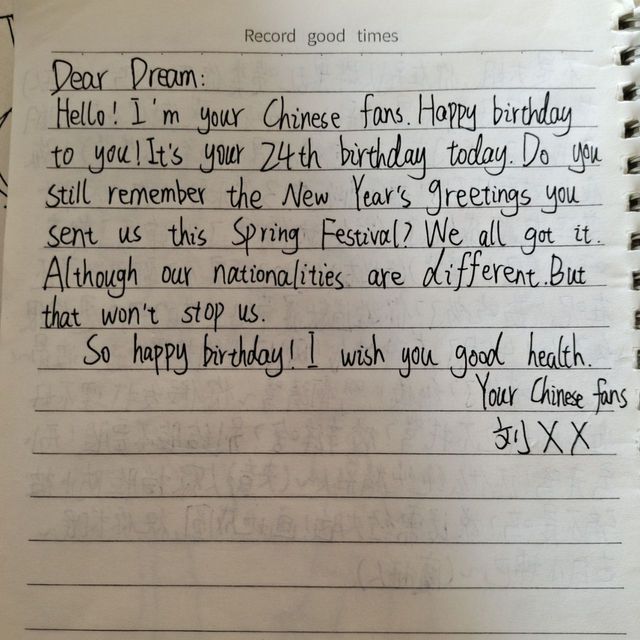 Record good times
Dear Dream:
Hello! I'm your Chinese fans. Happy birthday
to you! It's your 24th birthday today. Do you
still remember the New Year's greetings you
sent us this Spring Festival? We all got it.
Although our nationalities are different. But
that won't stop us.
So happy birthday! I wish you good health.
Your Chinese fans
刘XX